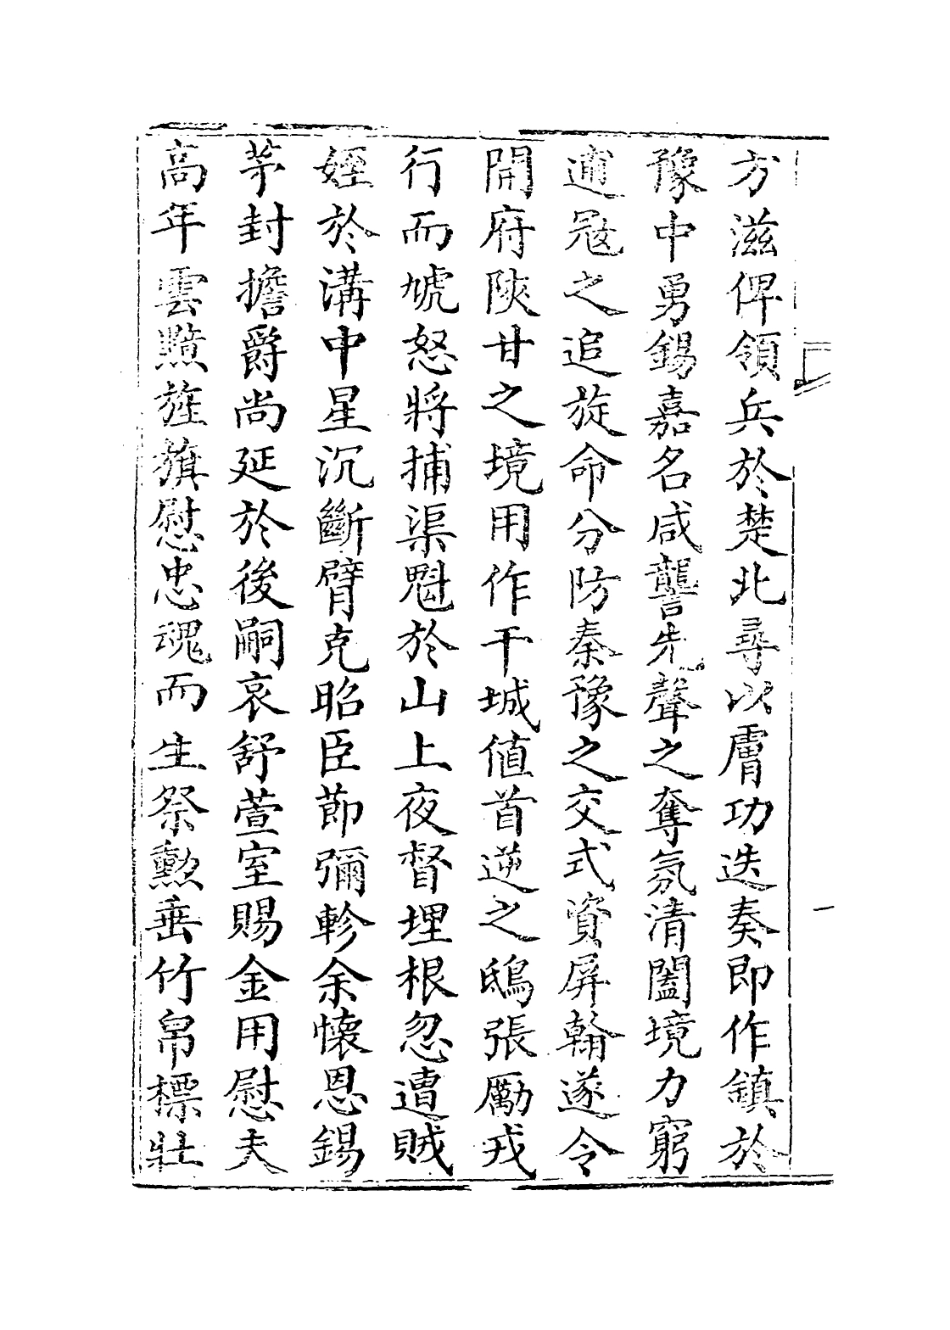 方滋俾領兵於楚北尋以膚功迭奏即作鎮於
豫中勇錫嘉名咸讋先聲之奪氛清闔境力窮
逋寇之追旋命分防秦豫之交式資屏翰遂令
開府陝甘之境用作干城値首逆之鴟張勵戎
行而虓怒將捕渠魁於山上夜督埋根忽遭賊
䂺於溝中星沉斷臂克昭臣節彌軫余懷恩錫
茅封擔爵尚延於後嗣哀舒萱室賜金用慰夫
高年雲黯旌旗慰忠魂而生祭勲垂竹帛標壯